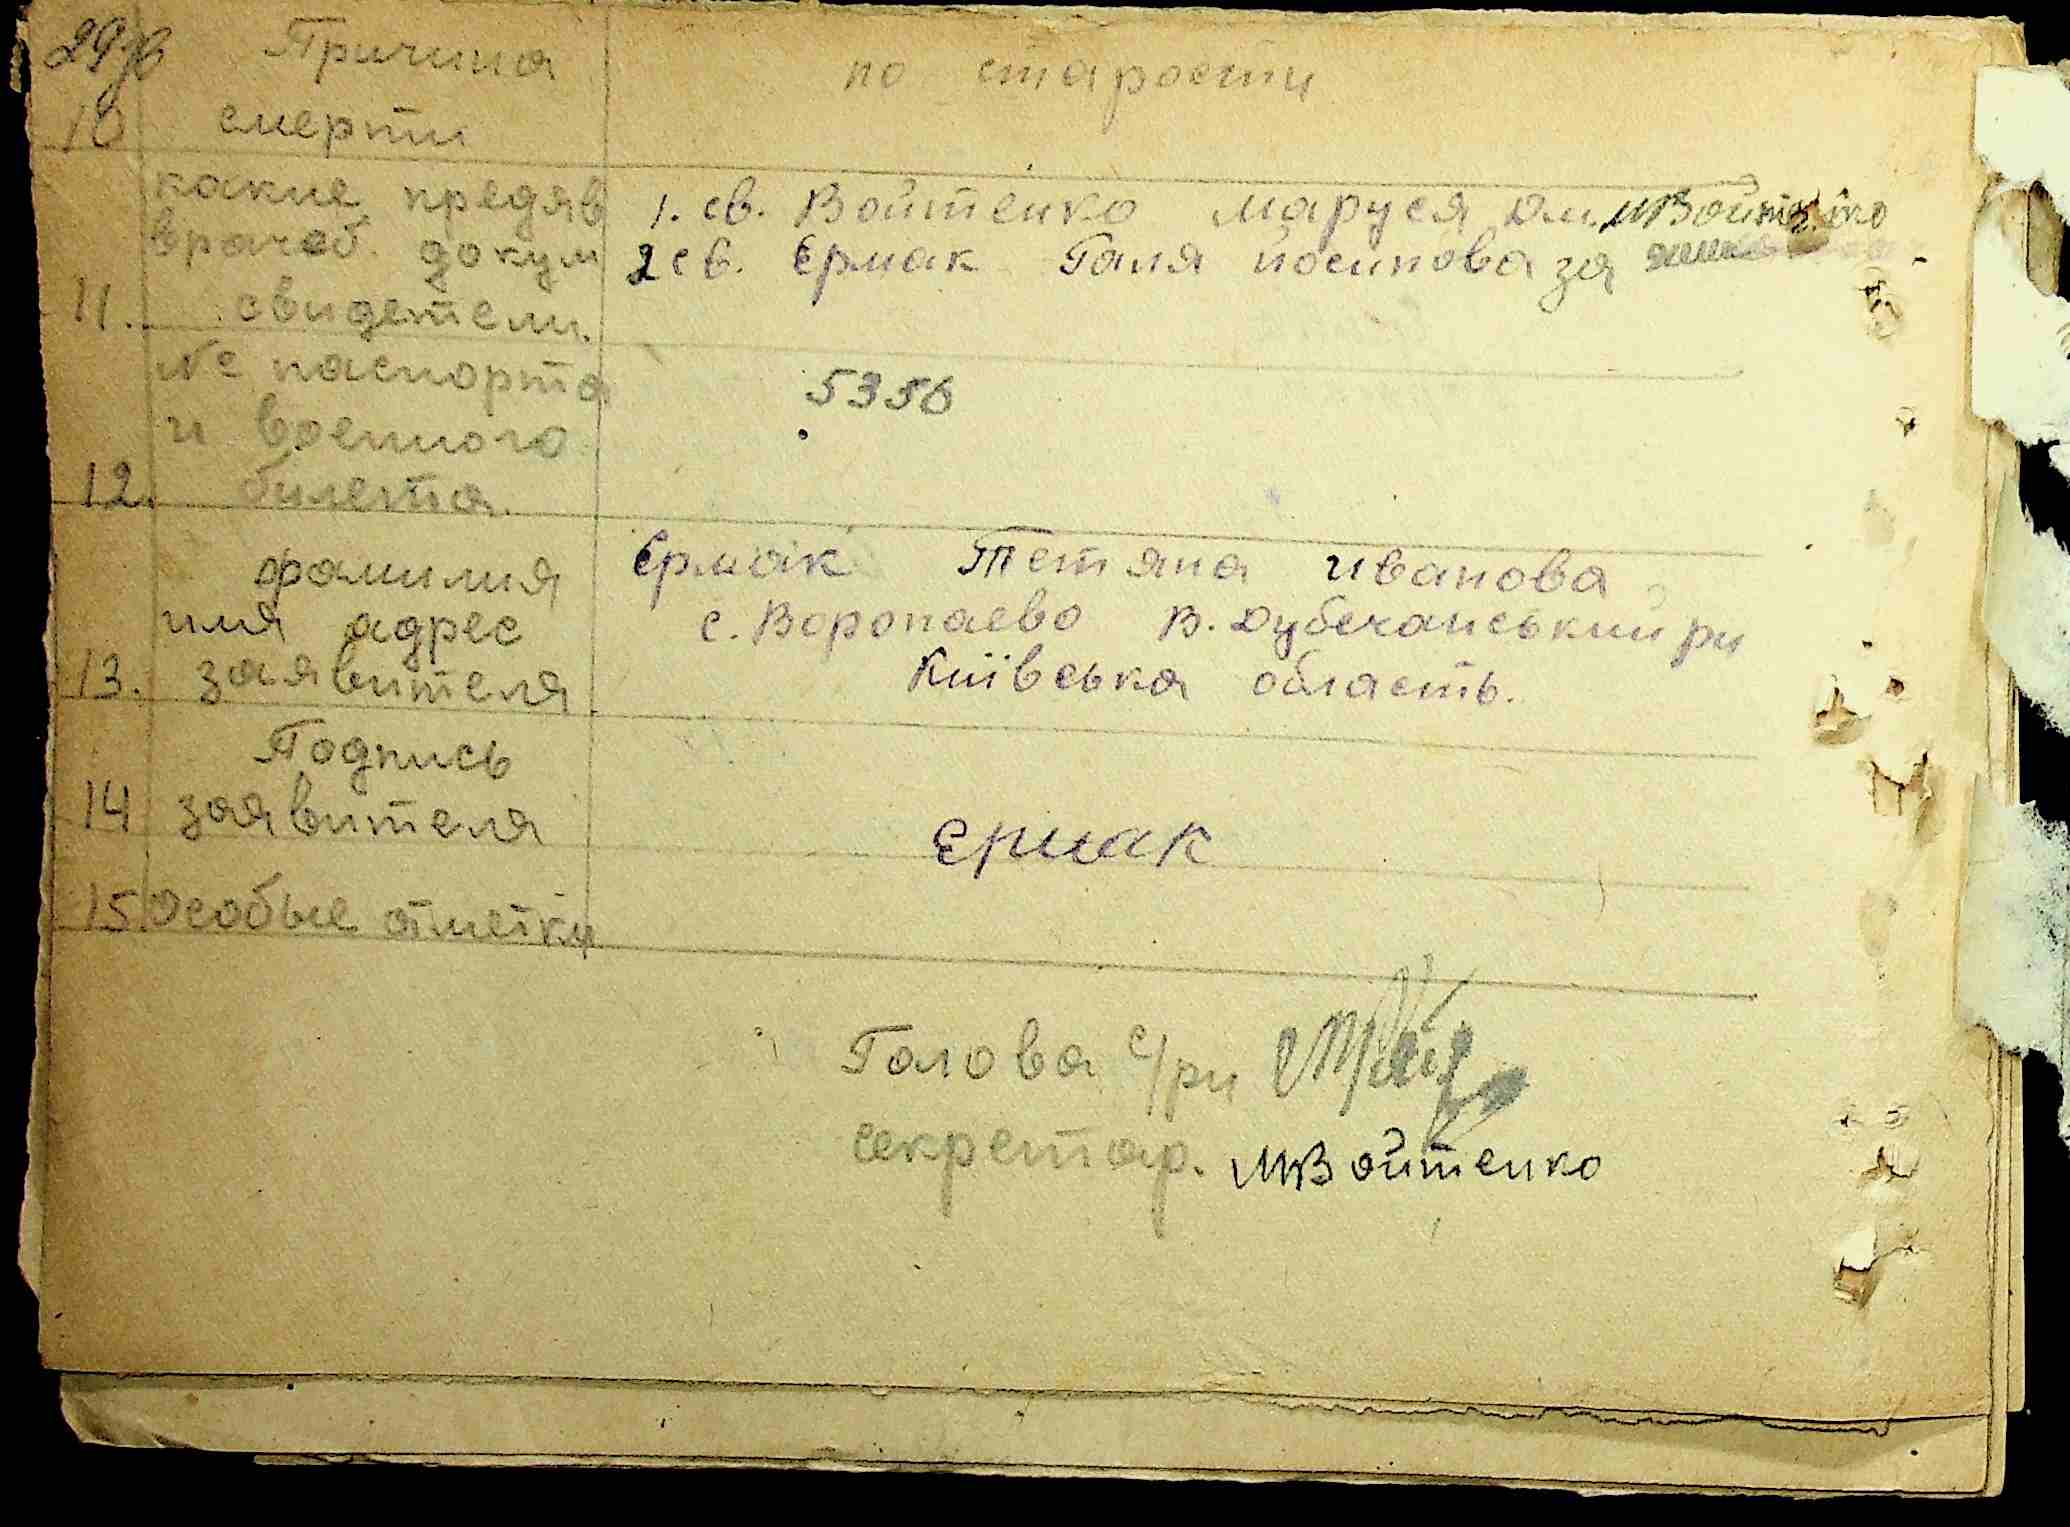 29зв
Причина
по старости
10 смерти
какие предяв
1. св. Войтенко Маруся Ом. МВойтенко
врачеб. докум
2 св. Ермак Галя Йосипова за
11. свидетели.
№ паспорта
5356
и военного
12. билета.
фамилия
Ермак Тетяна Иванова
имя адрес
с. Воропаево В. Дубечанський рн
13. заявителя
Київська область.
Подпись
14 заявителя
Ермак
15. Особые отметки
Голова с/ри
секретар. МВойтенко